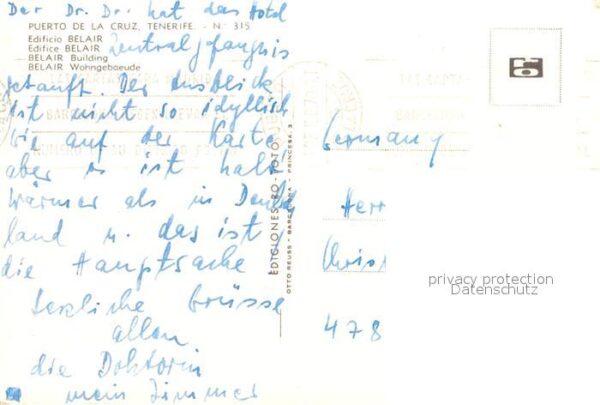 Der Dr. Dr. hat das Hotel
PUERTO DE LA CRUZ, TENERIFE. - N.° 315
Edificio BELAIR
Edifice BELAIR
BELAIR Building
BELAIR Wohngebaeude
Zentralgefängnis
getauft. Der Ausblick
ist nicht so idyllisch
wie auf der Karte
aber es ist halt
wärmer als in Deutsch
land u. das ist
die Hauptsache
herzliche Grüsse
allen
die Doktorin
mein Zimmer
EDICIONES RO-FOTO
OTTO REUSS - BARCELONA - PRINCESA, 3
Germany
Herr
Christ
478
privacy protection
Datenschutz